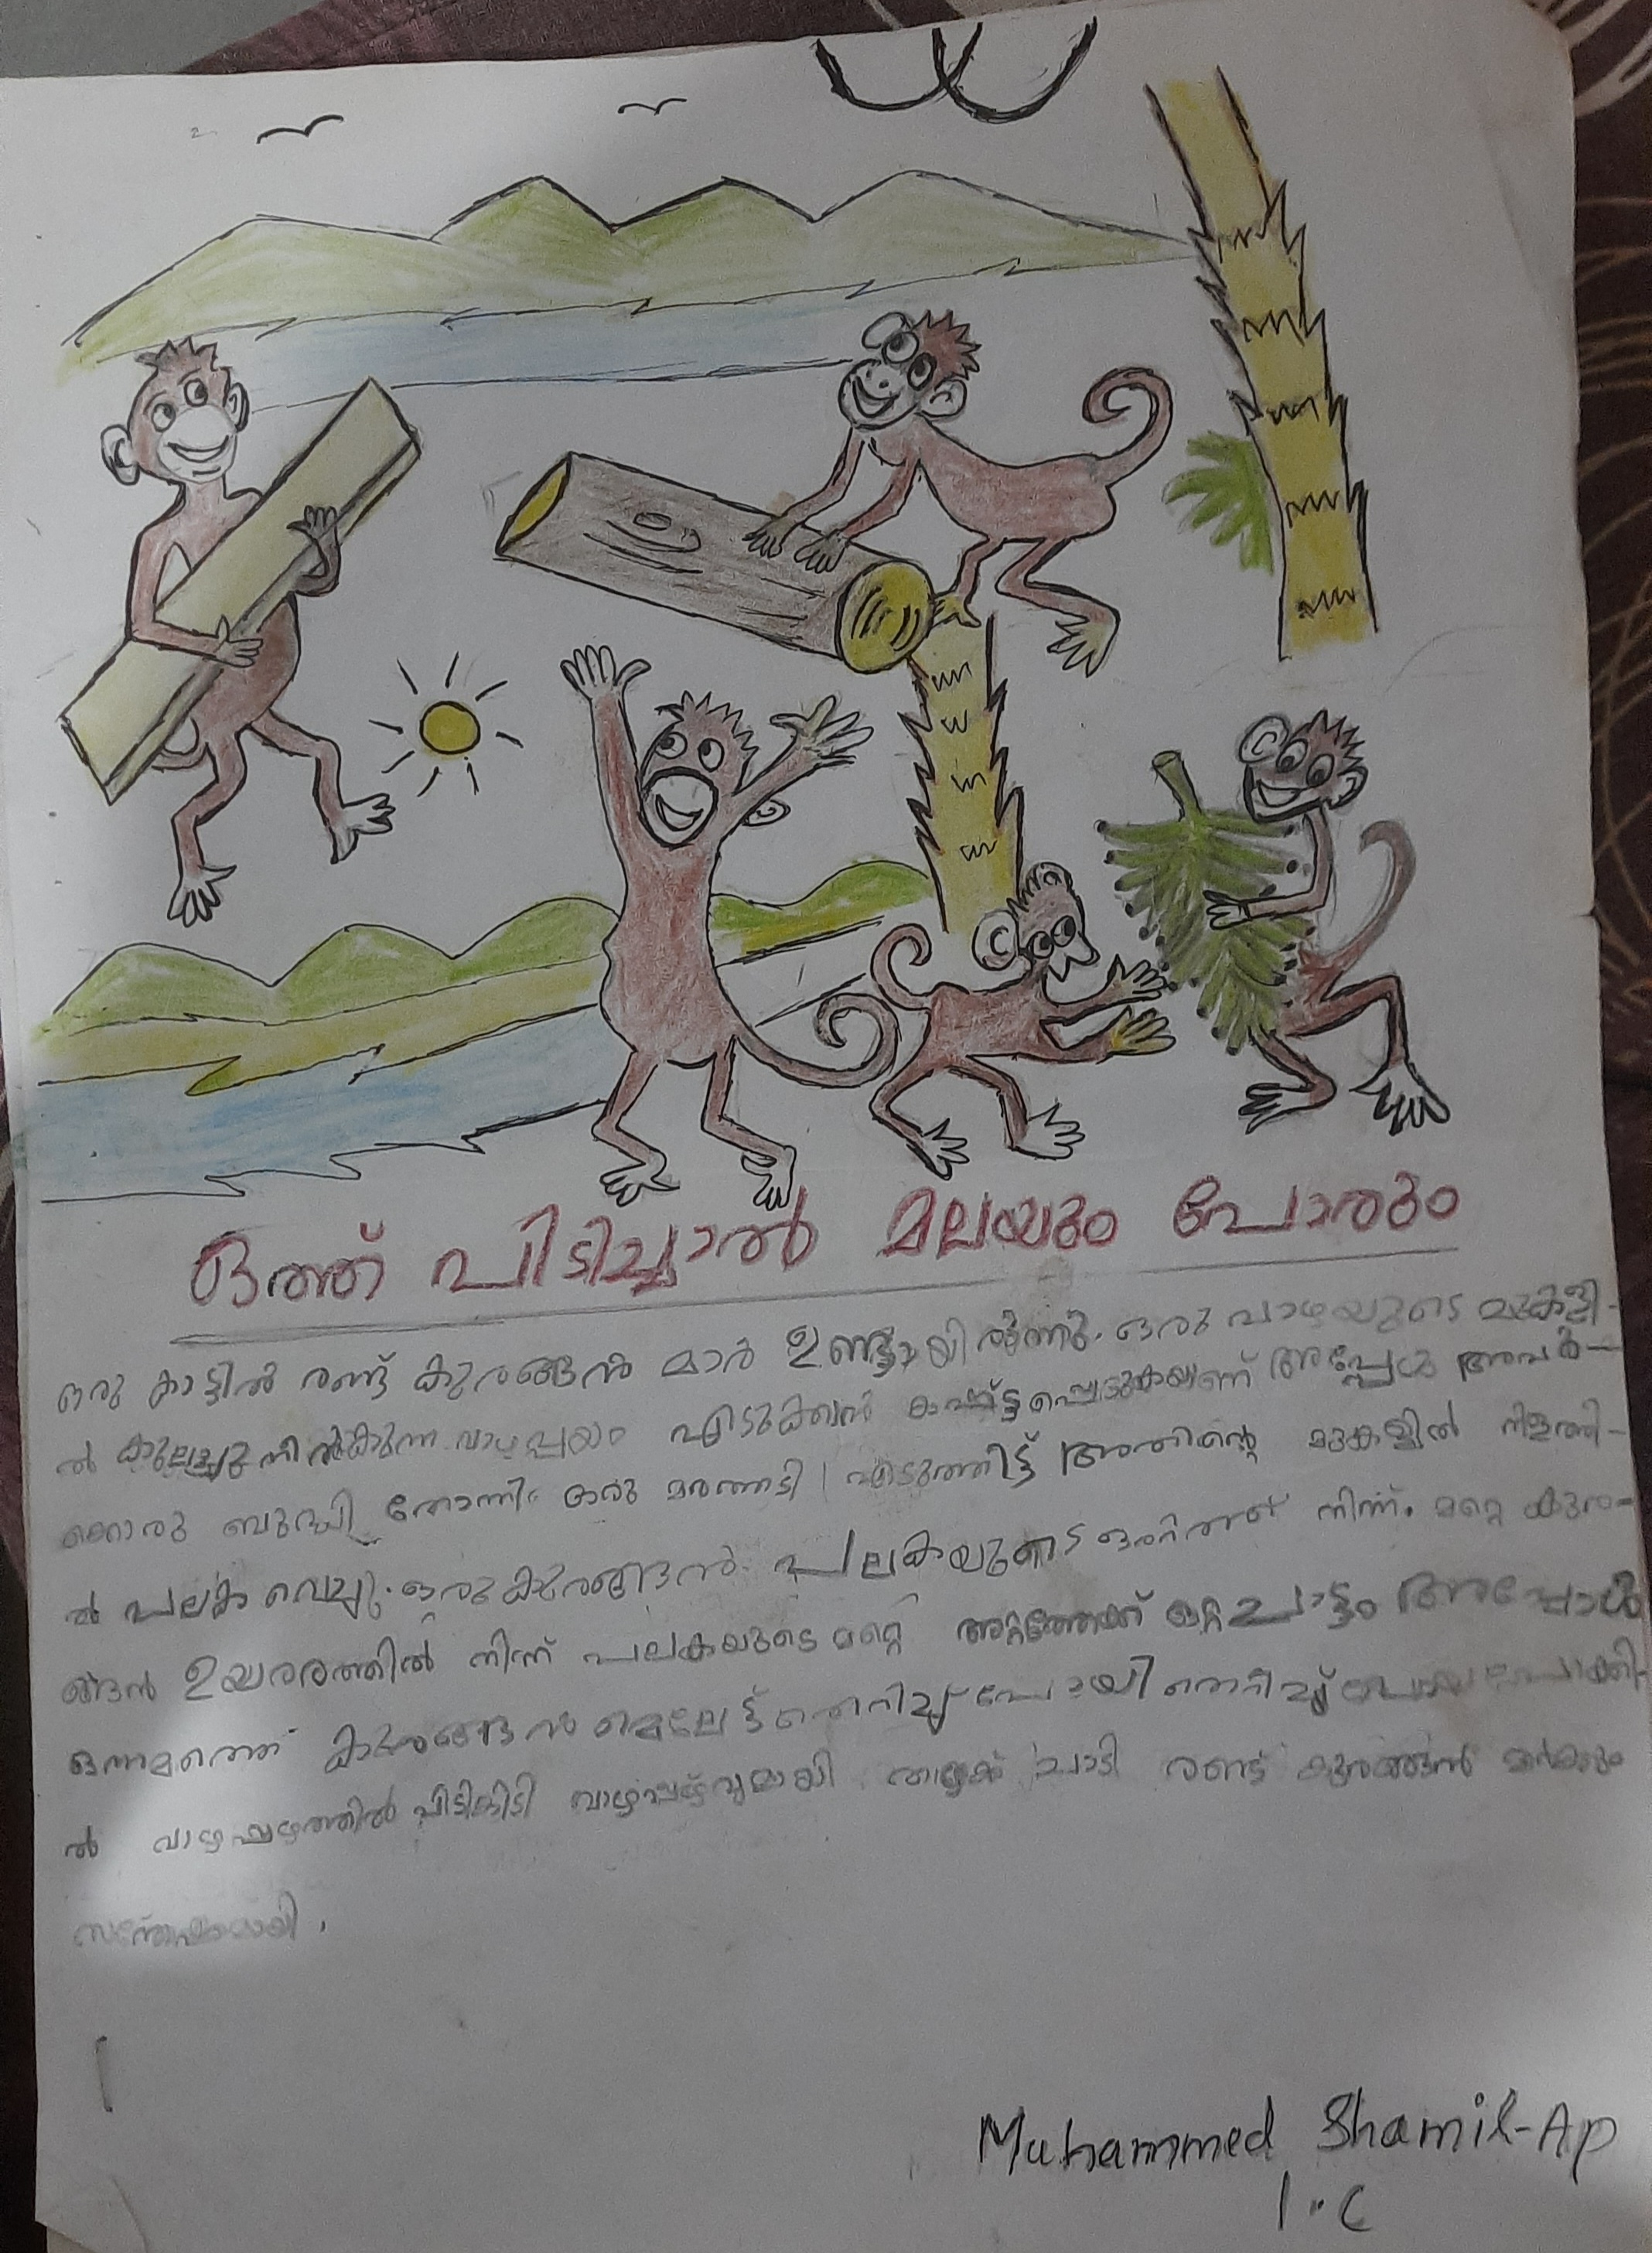 ഒത്ത് പിടിച്ചാൽ മലയും പോരും
ഒരു കാട്ടിൽ രണ്ട് കുരങ്ങൻ മാർ ഉണ്ടായിരുന്നു. ഒരു വാഴയുടെ മുകളി-
ൽ കുലച്ചു നിൽകുന്ന വാഴപ്പഴം എടുക്കാൻ കഷ്ട്ടപ്പെടുകയണ് അപ്പേൾ അവർ-
ക്കൊരു ബുദ്ധി തോന്നി ഒരു മരത്തടി എടുത്തിട്ട് അതിന്റെ മുകളിൽ നീളത്തി-
ൽ പലക വെച്ചു. ഒരു കുരങ്ങൻ പലകയുടെ ഒരറ്റത്ത് നിന്ന്. മറ്റെ കുര-
ങ്ങൻ ഉയരരത്തിൽ നിന്ന് പലകയുടെ മറ്റെ അറ്റത്തേക്ക് ഒറ്റ ചാട്ടം അപ്പോൾ
ഒന്നമത്തെ കുരങ്ങൻ മെലേട്ട് തെറിച്ചു പോയി തെറിച്ച് പോക്കി-
ൽ വാഴപ്പഴത്തിൽ പിടികിടി വാഴപ്പഴവുമായി താഴെക്ക് ചാടി രണ്ട് കുരങ്ങൻ മർകും
സന്തോഷമായി.
Muhammed Shamil-Ap
1.C